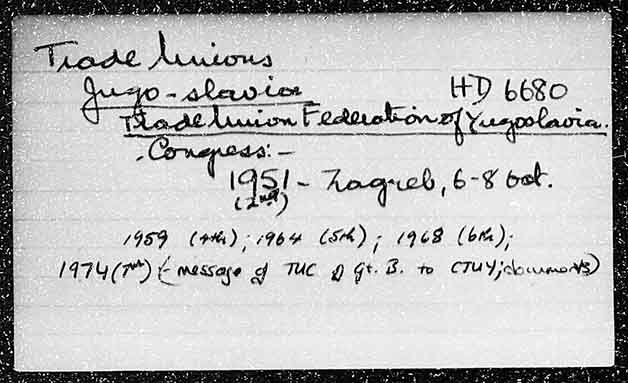 Trade Unions
Jugo-slavia HD 6680
Trade Union Federation of Yugoslavia.
- Congress:-
1951 - Zagreb, 6-8 Oct.
(2nd)
1959 (4th); 1964 (5th); 1968 (6th);
1974 (7th) (- message of TUC of Gt. B. to CTUY; documents)